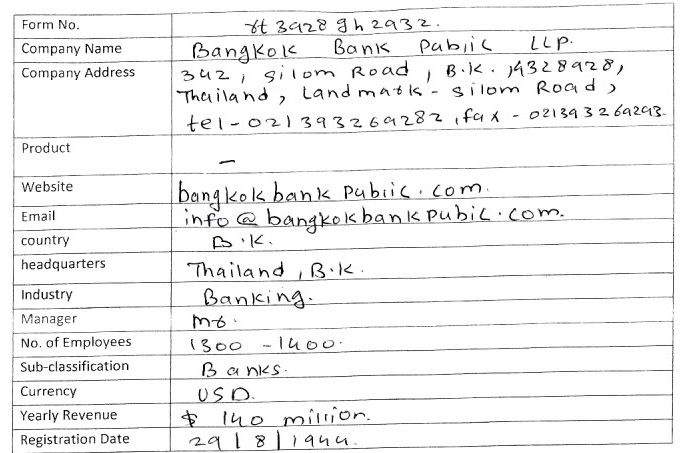 Form No. rt 3928 gh 2932.
Company Name Bangkok Bank Public LLP.
Company Address 342, Silom Road, B.K. 14328928,
Thailand, Landmark - Silom Road,
tel - 021393269282, fax - 021393269293.
Product -
Website bangkokbankpublic.com.
Email info@bangkokbankpubic.com.
country B.K.
headquarters Thailand, B.K.
Industry Banking.
Manager Mr.
No. of Employees 1300 - 1400.
Sub-classification Banks.
Currency USD.
Yearly Revenue $ 140 million.
Registration Date 29/8/1944.